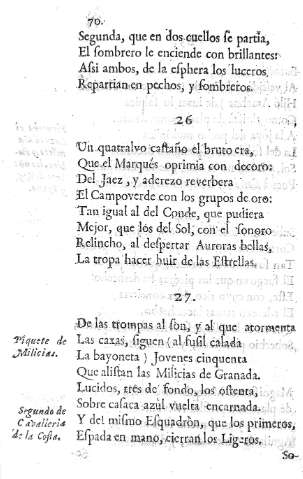 70.
Segunda, que en dos cuellos se partia,
El sombrero le enciende con brillantes:
Assi ambos, de la esphera los luceros,
Repartian en pechos, y sombreros.
26
Un quatralvo castaño el bruto era,
Que el Marqués oprimia con decoro:
Del Jaez, y aderezo reverbera
El Campoverde con los grupos de oro:
Tan igual al del Conde, que pudiera
Mejor, que los del Sol, con el sonoro
Relincho, al despertar Auroras bellas,
La tropa hacer huir de las Estrellas.
27.
De las trompas al son, y al que atormenta
Piquete de Milicias.
Las caxas, siguen (al fusil calada
La bayoneta) Jovenes cinquenta
Que alistan las Milicias de Granada.
Lucidos, tres de fondo, los ostenta,
Sobre casaca azul vuelta encarnada.
Segundo de Cavalleria de la Costa.
Y del mismo Esquadròn, que los primeros,
Espada en mano, cierran los Ligeros.
So-